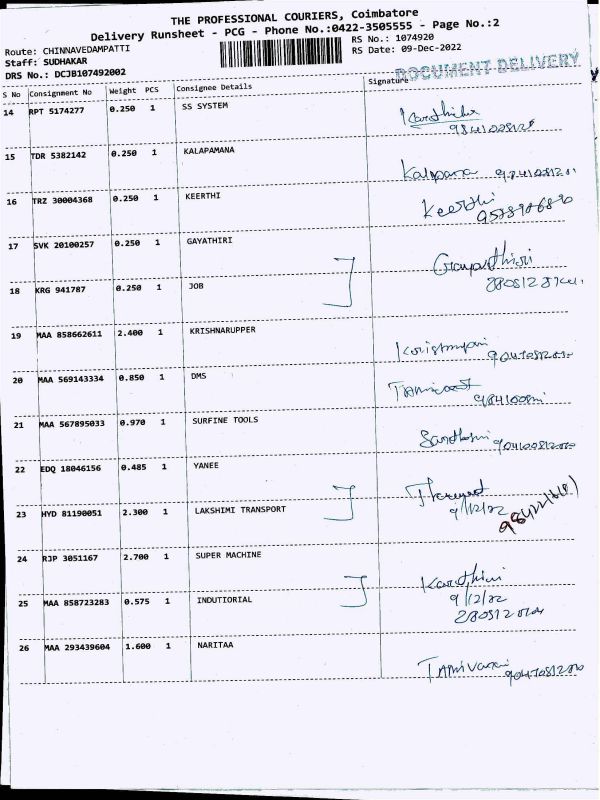 THE PROFESSIONAL COURIERS, Coimbatore
Delivery Runsheet - PCG - Phone No.:0422-3505555 - Page No.:2
Route: CHINNAVEDAMPATTI
RS No.: 1074920
Staff: SUDHAKAR
RS Date: 09-Dec-2022
DRS No.: DCJB107492002
DOCUMENT DELIVERY
S No Consignment No Weight PCS Consignee Details Signature
14 RPT 5174277 0.250 1 SS SYSTEM
Karthika
15 TDR 5382142 0.250 1 KALAPAMANA
Kalpana
16 TRZ 30004368 0.250 1 KEERTHI
Keerthi
17 SVK 20100257 0.250 1 GAYATHIRI
18 KRG 941787 0.250 1 JOB
19 MAA 858662611 2.400 1 KRISHNARUPPER
20 MAA 569143334 0.850 1 DMS
21 MAA 567895033 0.970 1 SURFINE TOOLS
22 EDQ 18046156 0.485 1 YANEE
23 HYD 81190051 2.300 1 LAKSHIMI TRANSPORT
9/12/22
24 RJP 3051167 2.700 1 SUPER MACHINE
25 MAA 858723283 0.575 1 INDUTIORIAL
9/12/22
26 MAA 293439604 1.600 1 NARITAA